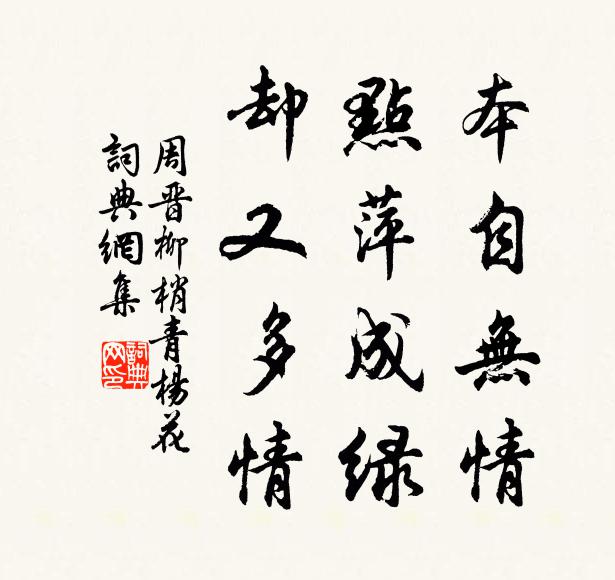 本自無情
點萍成緑
却又多情
周晋柳梢青楊花
詞典網集
詞典网印